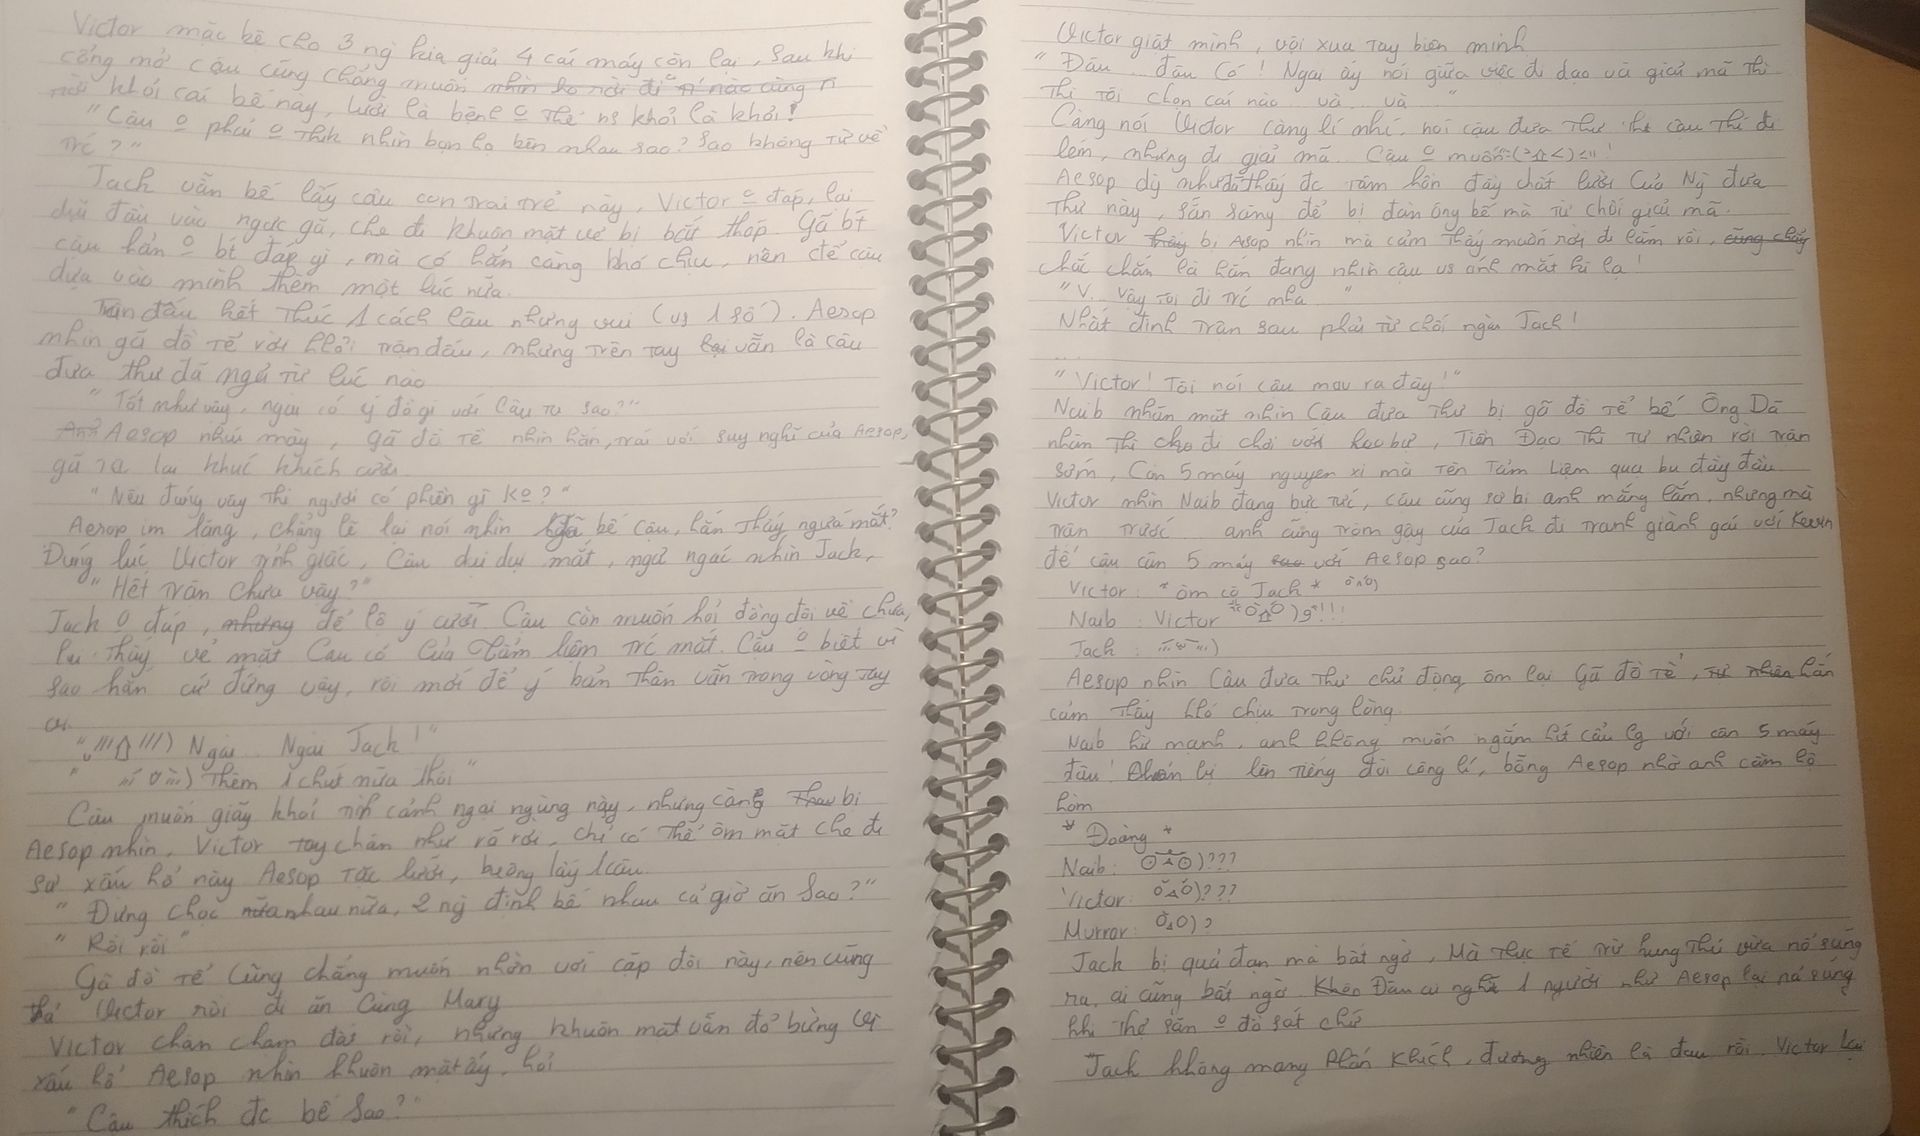 Victor mặc kệ cho 3 ng kia giải 4 cái máy còn lại, sau khi
cổng mở cậu cũng chẳng muốn nhìn họ rời đi
rời khỏi cái bế này, lười là bệnh o thể ns khỏi là khỏi!
"Cậu o phải o thik nhìn bọn họ bên nhau sao? Sao không từ về
trc?"
Jack vẫn bế lấy cậu con trai trẻ này, Victor o đáp, lại
dụi đầu vào ngực gã, che đi khuôn mặt vẻ bị bắt thóp. Gã bt
cậu hẳn o bt đáp gì, mà có hẳn càng khó chịu, nên để cậu
dựa vào mình thêm một lúc nữa.
Trận đấu kết thúc 1 cách lâu nhưng vui (vs 1 số). Aesop
nhìn gã đồ tể rời khỏi trận đấu, nhưng trên tay lại vẫn là cậu
đưa thư đã ngủ từ lúc nào
"Tốt như vậy, ngài có ý đồ gì với cậu ta sao?"
Anh Aesop nhíu mày, gã đồ tể nhìn hắn, trái với suy nghĩ của Aesop,
gã ta lại khúc khích cười
"Nếu đúng vậy thì ngươi có phiền gì ko?"
Aesop im lặng, chẳng lẽ lại nói nhìn ngài bế cậu, hắn thấy ngứa mắt?
Đúng lúc Victor tỉnh giấc, cậu dụi dụi mắt, ngơ ngác nhìn Jack,
"Hết trận chưa vậy?"
Jack o đáp, nhưng để lộ ý cười. Cậu còn muốn hỏi đồng đội về chưa,
lại thấy vẻ mặt cau có của tẩm liệm trc mắt. Cậu o biết vì
sao hắn cứ đứng vậy, rồi mới để ý bản thân vẫn trong vòng tay
Ngài.. Ngài Jack!"
Thêm 1 chút nữa thôi"
Cậu muốn giãy khỏi tình cảnh ngại ngùng này, nhưng càng bị
Aesop nhìn, Victor tay chân như rã rời, chỉ có thể ôm mặt che đi
sự xấu hổ này Aesop tặc lưỡi, buông lấy 1 câu
"Đừng chọc nữa nhau nữa, 2 ng định bế nhau cả giờ ăn sao?"
"Rồi rồi"
Gã đồ tể cũng chẳng muốn nhờn với cặp đôi này, nên cũng
thả Victor rồi đi ăn cùng Mary
Victor chân chạm đất rồi, nhưng khuôn mặt vẫn đỏ bừng vì
xấu hổ Aesop nhìn khuôn mặt ấy, hỏi
"Cậu thích đc bế sao?"
Victor giật mình, vội xua tay biện minh
"Đâu.. đâu có! Ngài ấy nói giữa việc đi dạo và giải mã thì
thì tôi chọn cái nào.. và.. và.."
Càng nói Victor càng lí nhí, nói cậu đưa thư thì cậu thì đi
lém, nhưng đi giải mã.. Cậu o muốn
Aesop dg như đã thấy đc tâm hồn đầy chất lười của Ng đưa
thư này, sẵn sàng để bị đàn ông bế mà từ chối giải mã.
Victor bị Aesop nhìn mà cảm thấy muốn rời đi lắm rồi,
chắc chắn là hắn đang nhìn cậu vs ánh mắt kì lạ!
"V.. vậy tôi đi trc nha.."
Nhất định trận sau phải từ chối ngài Jack!
...
"Victor! Tôi nói cậu mau ra đây!"
Naib nhăn mặt nhìn cậu đưa thư bị gã đồ tể bế. Ông Dã
nhân thì cho đi chơi với heo bự, Tiền Đạo thì tự nhiên rời trận
sớm, còn 5 máy nguyên xi mà tên Tẩm Liệm qua bu đầy đầu
Victor nhìn Naib đang bực tức, cậu cũng sợ bị anh mắng lắm, nhưng mà
trận trước anh cũng trộm gậy của Jack đi tranh giành gái với Kevin
để cậu cân 5 máy với Aesop sao?
Victor: *ôm cổ Jack*
Naib: Victor !!!
Jack:
Aesop nhìn cậu đưa thư chủ động ôm lại gã đồ tể, tự nhiên hắn
cảm thấy khó chịu trong lòng.
Naib hừ mạnh, anh không muốn ngắm hít cẩu lg với cân 5 máy
đâu! Chuẩn bị lên tiếng đòi công lí, bỗng Aesop nhờ anh cầm hộ
hòm
*Đoàng*
Naib: ???
Victor: ???
Murror: ?
Jack bị quả đạn mà bất ngờ, Mà thực tế trừ hung thủ vừa nổ súng
ra, ai cũng bất ngờ. Đâu ai nghĩ 1 người như Aesop lại nả súng
khi thợ săn o đồ sát chứ
Jack không mang Phấn Khích, đương nhiên là đau rồi. Victor lại